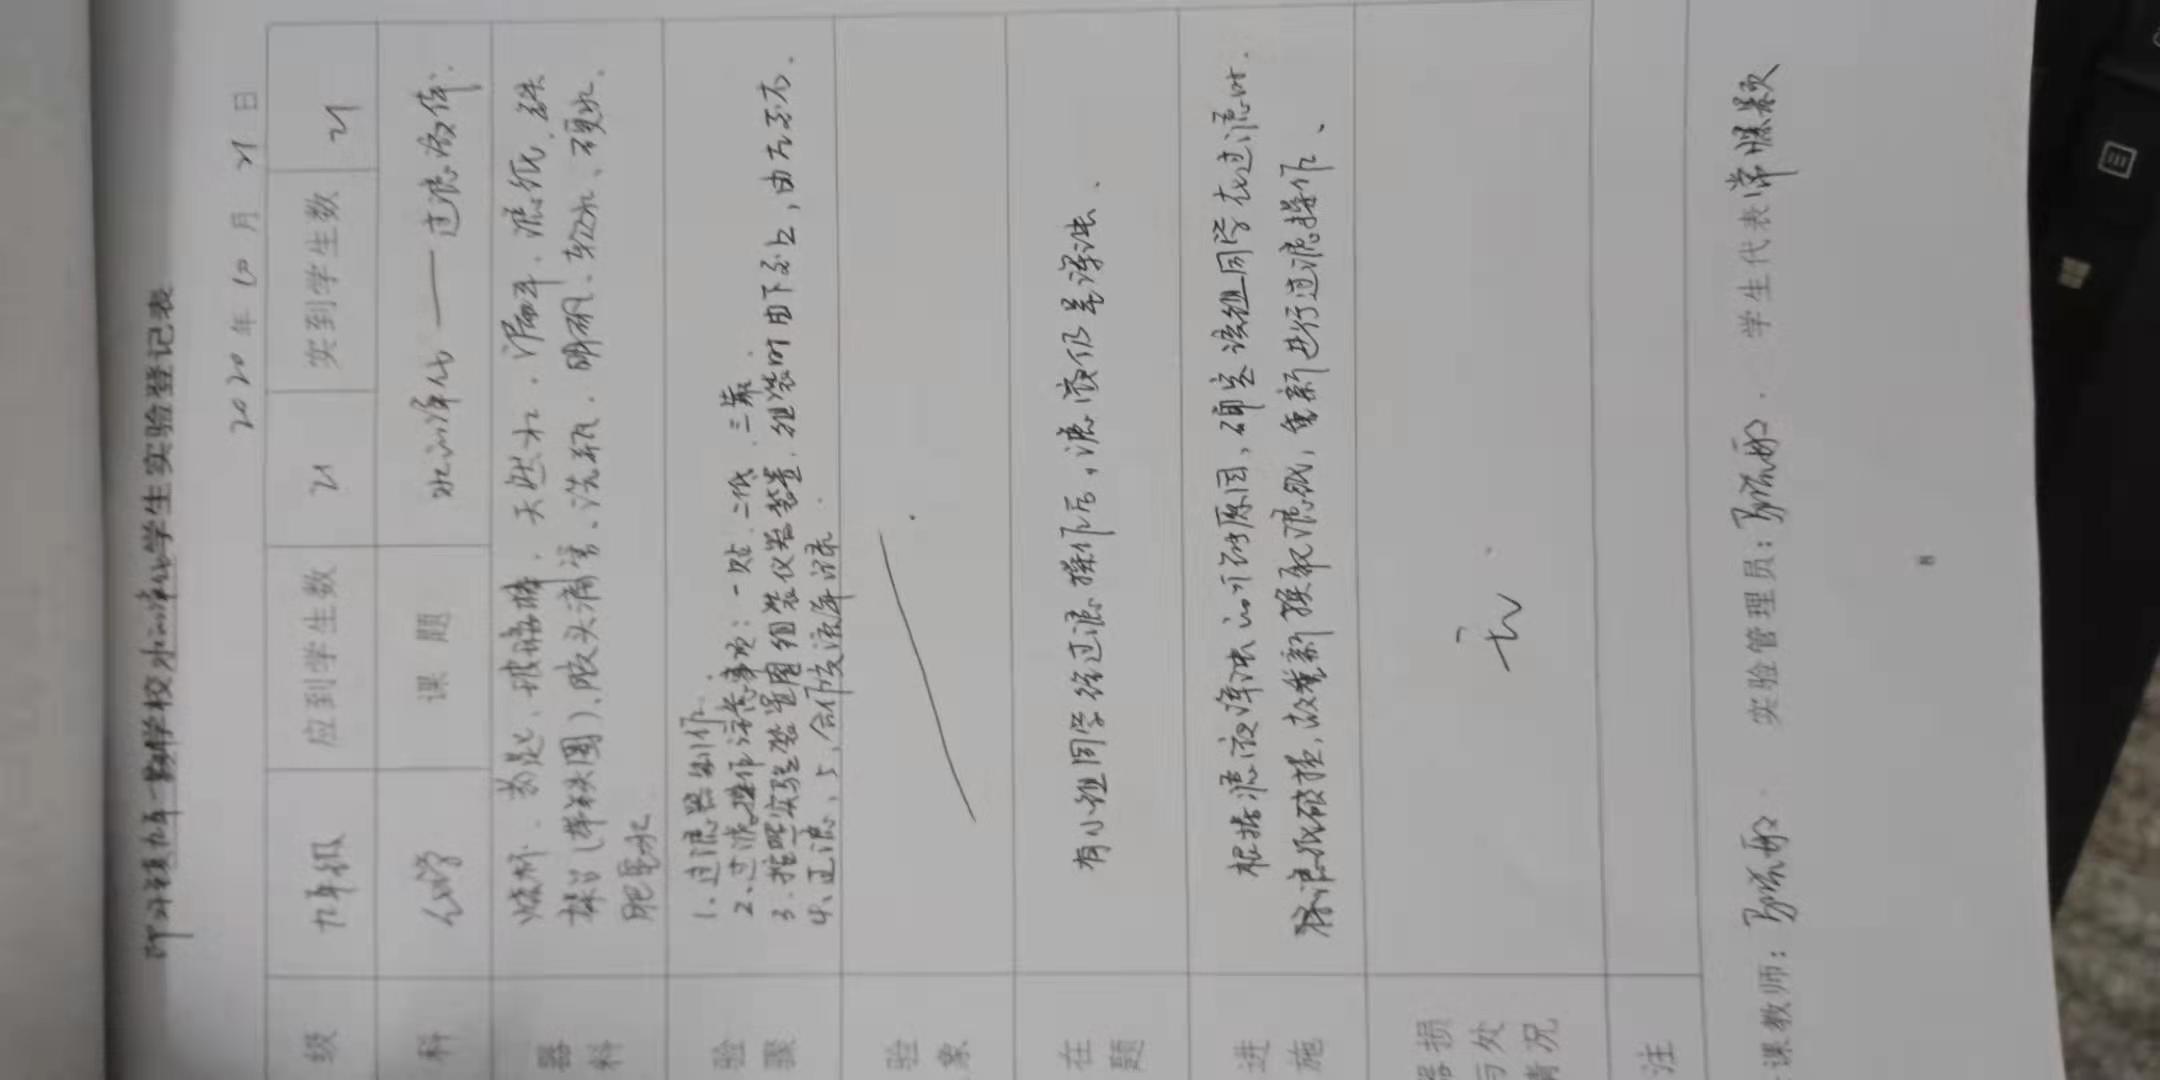 九年一贯制学校水的净化学生实验登记表
2020年10月21日
级 九年级 应到学生数 21 实到学生数 21
科 化学 课题 水的净化——过滤液体.
器料 烧杯. 漏斗、玻璃棒. 天然水. 滤纸. 铁
架台(带铁圈), 胶头滴管、洗瓶. 明矾、软水、硬水.
肥皂水
验骤 1. 过滤器制作.
2. 过滤操作注意事项: 一贴. 二低. 三靠.
3. 按照实验装置图组装仪器装置. 组装时由下至上, 由左至右.
4. 正滤、5, 合作
验象
在题 有小组同学经过滤操作后, 滤液仍呈浑浊、
进施 根据滤液浑浊分析原因, 确定该组同学在过滤时.
滤纸破损, 故重新换取滤纸, 重新进行过滤操作、
器损与处情况 无
注
课教师: 实验管理员: 学生代表
8